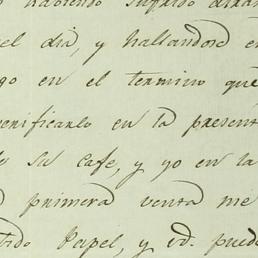 habiendo
el dia, y hallandose en
go en el termino que
enificarlo en la present
de su cafe, y yo en la
primera venta me
tido Papel, y vd. pued